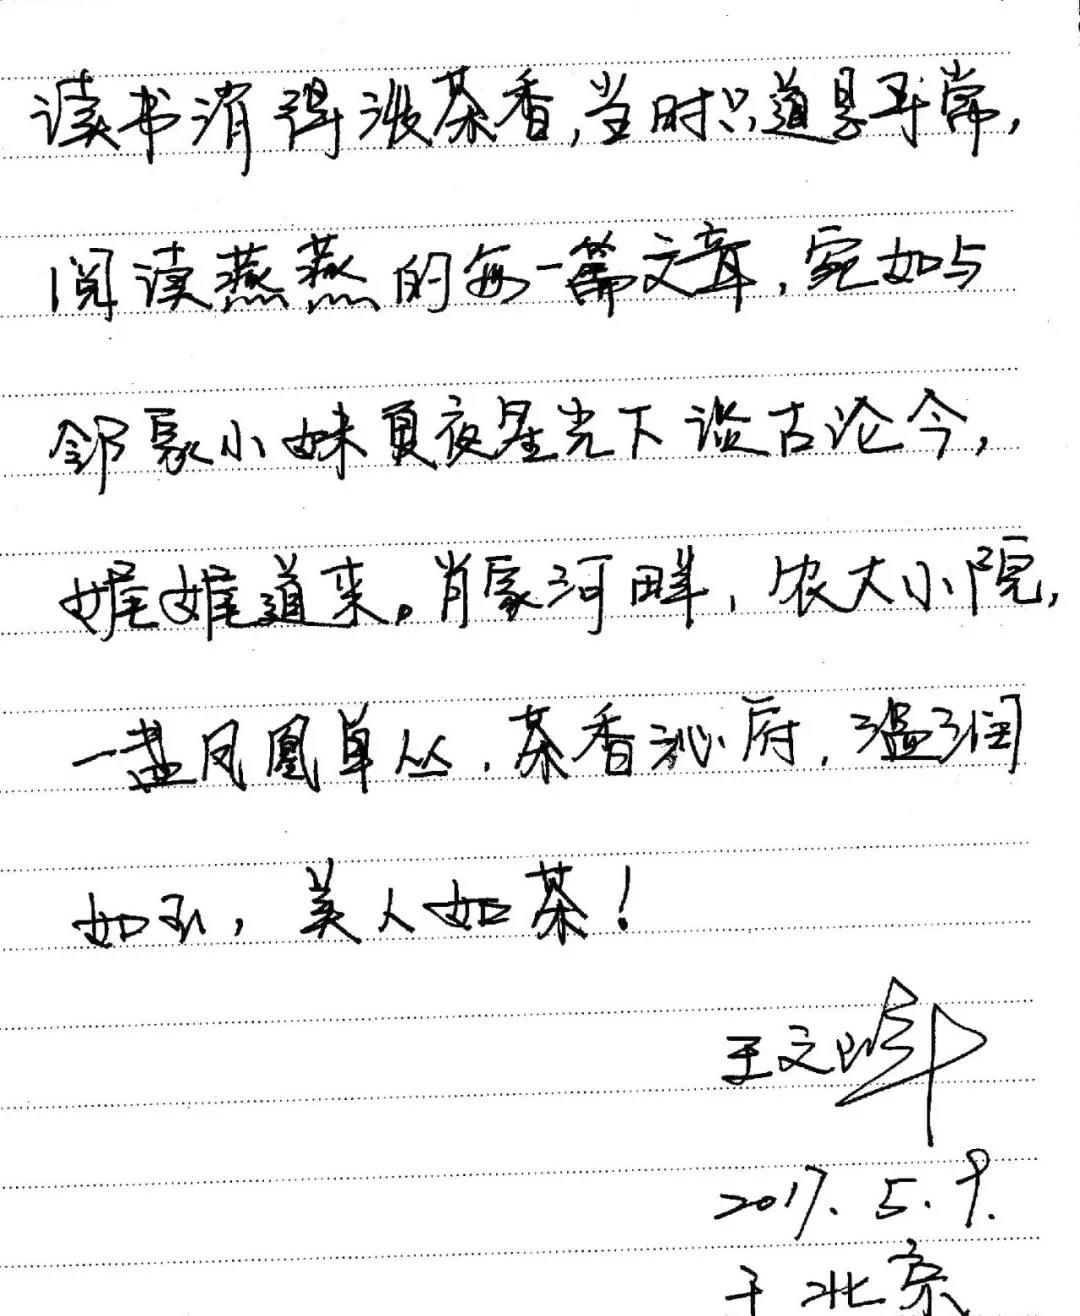 读书消得泼茶香,当时只道是寻常,
阅读燕燕的每一篇文章,宛如与
邻家小妹夏夜星光下谈古论今,
娓娓道来。肖家河畔,农大小院,
一盏凤凰单丛,茶香沁府,温润
如玉,美人如茶!
王文峰
2017.5.9.
于北京